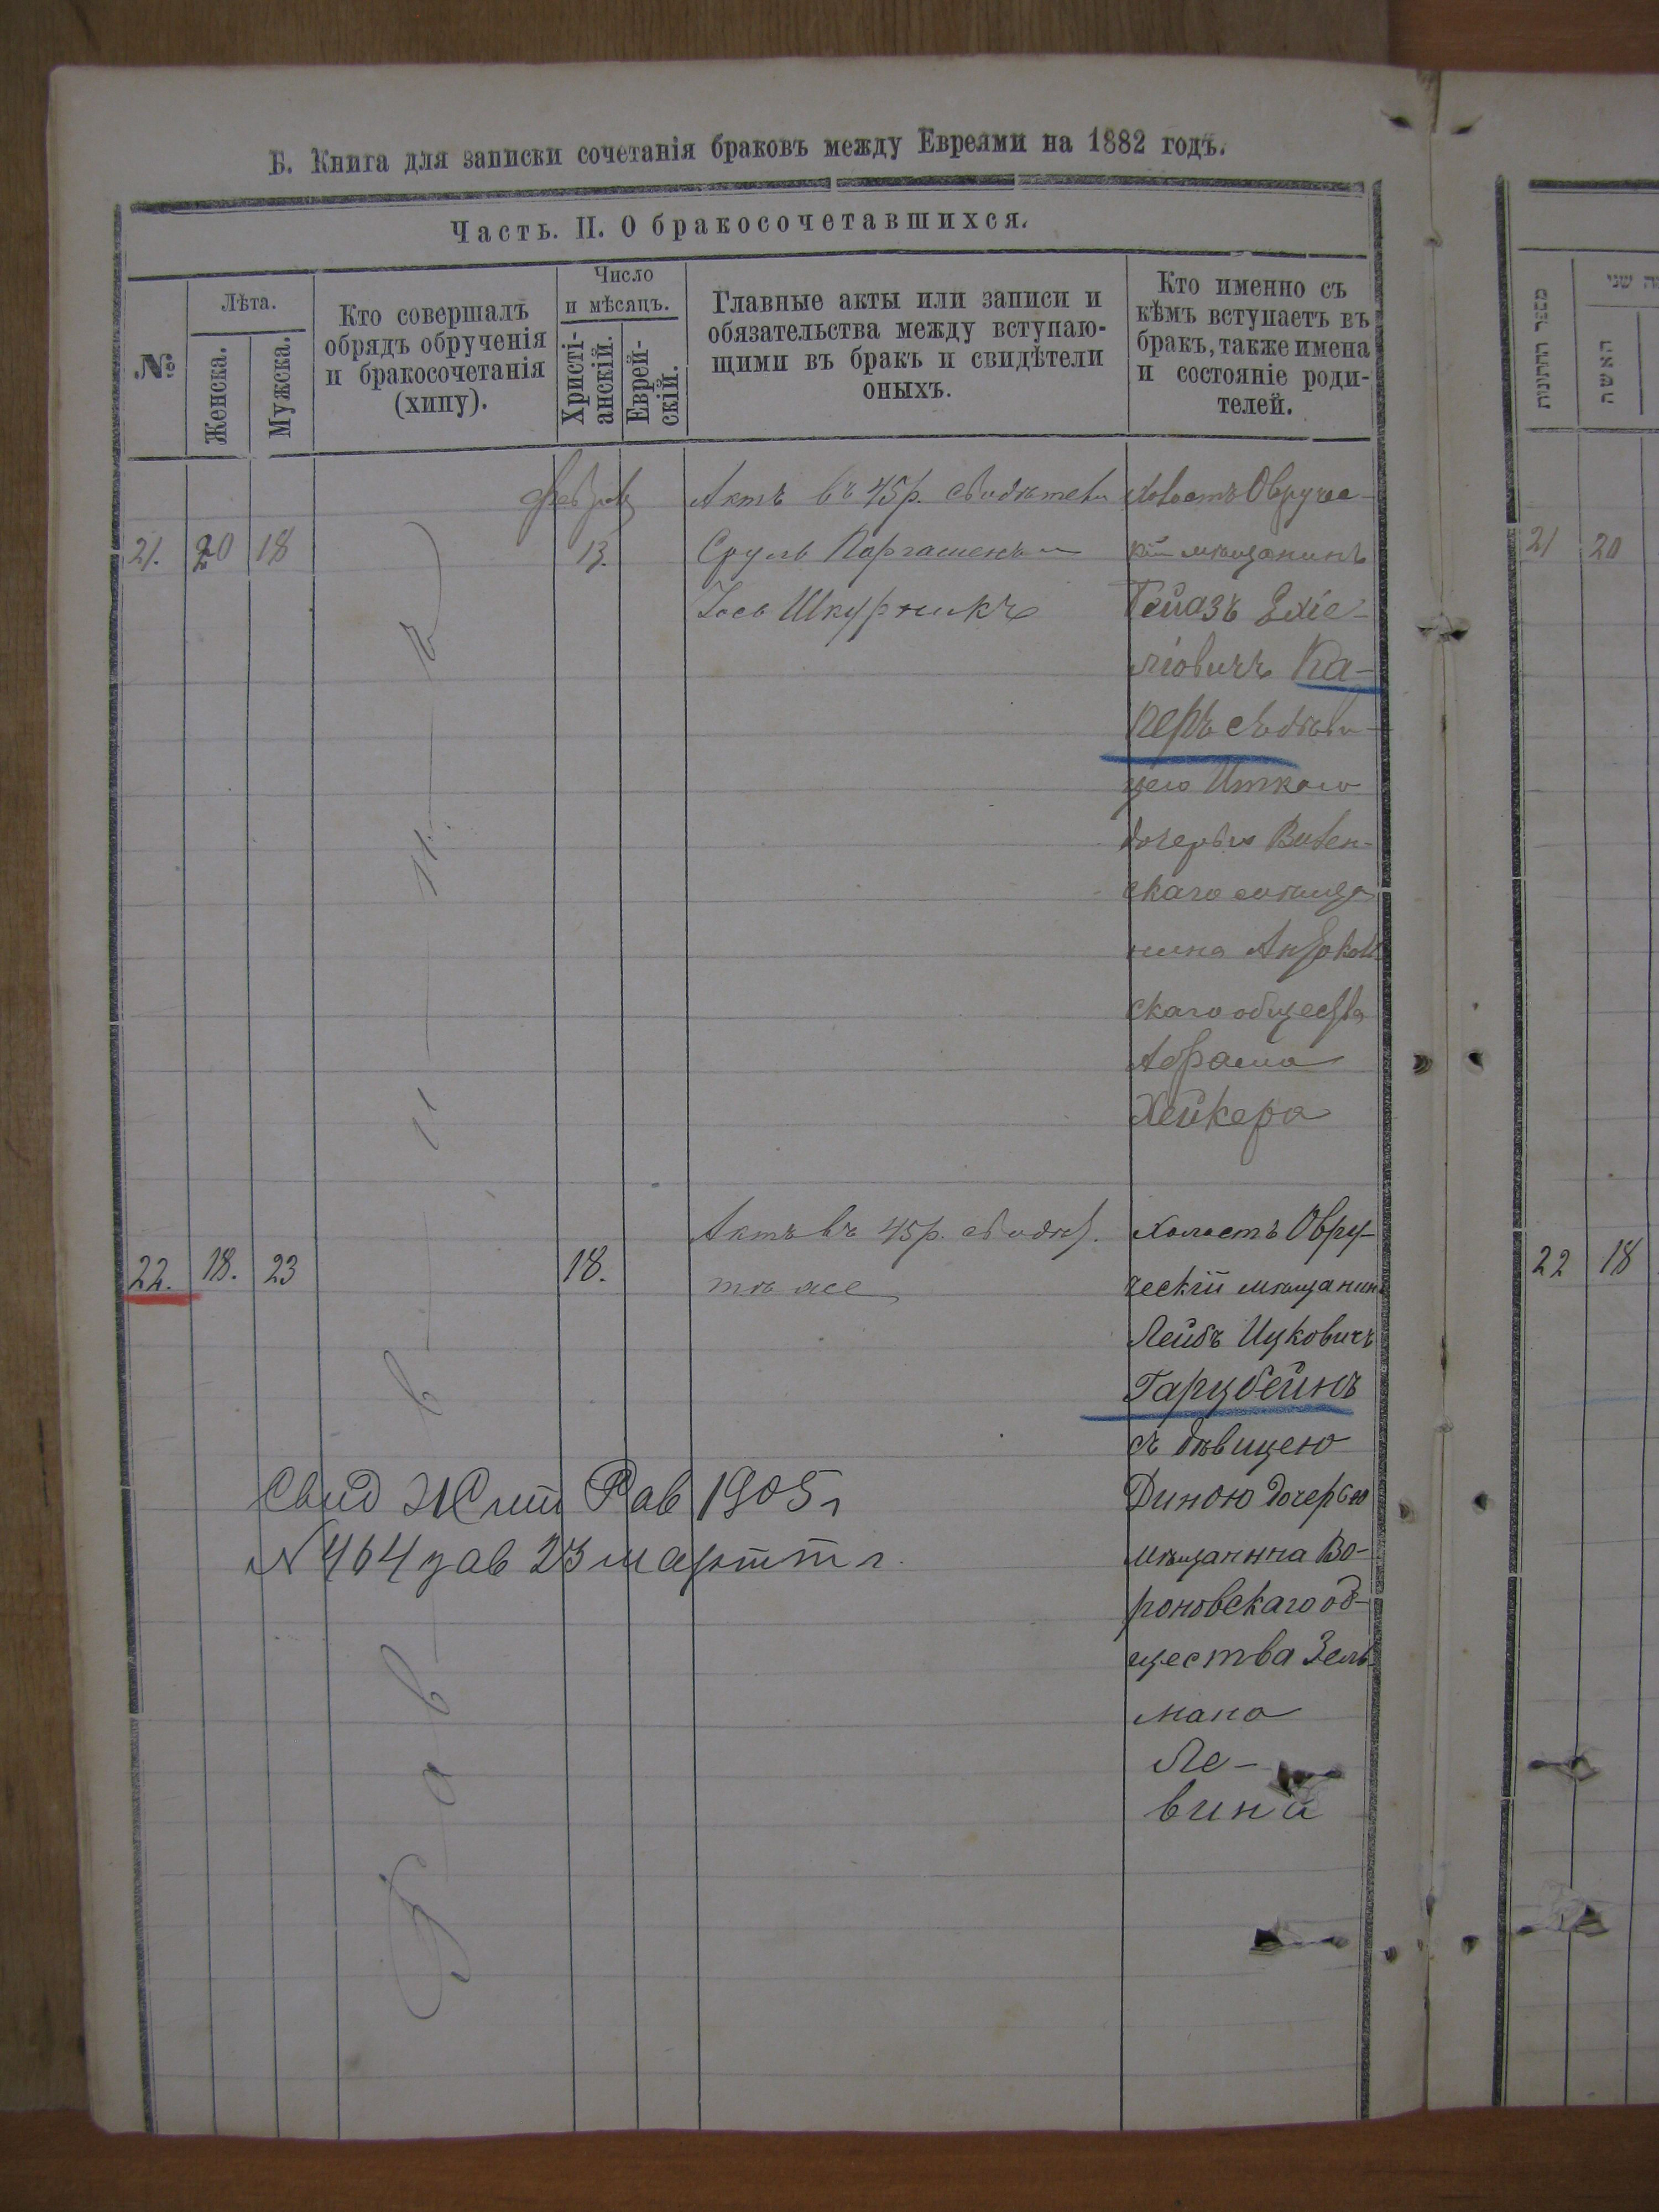 Б. Книга для записки сочетанія браковъ между Евреями на 1882 годъ.
Часть. II. О бракосочетавшихся.
№
Лѣта.
Женска.
Мужска.
Кто совершалъ
обрядъ обрученія
и бракосочетанія
(хипу).
Число
и мѣсяцъ.
Христі-
анскій.
Еврей-
скій.
Главные акты или записи и
обязательства между вступаю-
щими въ бракъ и свидѣтели
оныхъ.
Кто именно съ
кѣмъ вступаетъ въ
бракъ, также имена
и состояніе роди-
телей.
21. 20 18
13.
Актъ въ 45 р. свидѣтели
Сруль
Іось Шкурникъ
Холостъ Овруче-
кій мѣщанинъ
ліовичъ Ка-
перъ съ дѣви-
цею Иткою
дочерью
скаго мѣща
нина
скаго общества
Абрама
Хейкера
22. 18. 23
18.
Актъ въ 45 р. свидѣт.
тѣ же
Холостъ Овру-
ческій мѣщанинъ
Лейбъ Ицковичъ
Гарцбейнъ
съ дѣвицею
Диною дочерью
мѣщанина Во-
роновскаго об-
щества Зель
мана
Ле-
вина
Свид Жит Рав 1905 г
N 464 23 март т г.
מספר
האשה
שני
21 20
22 18